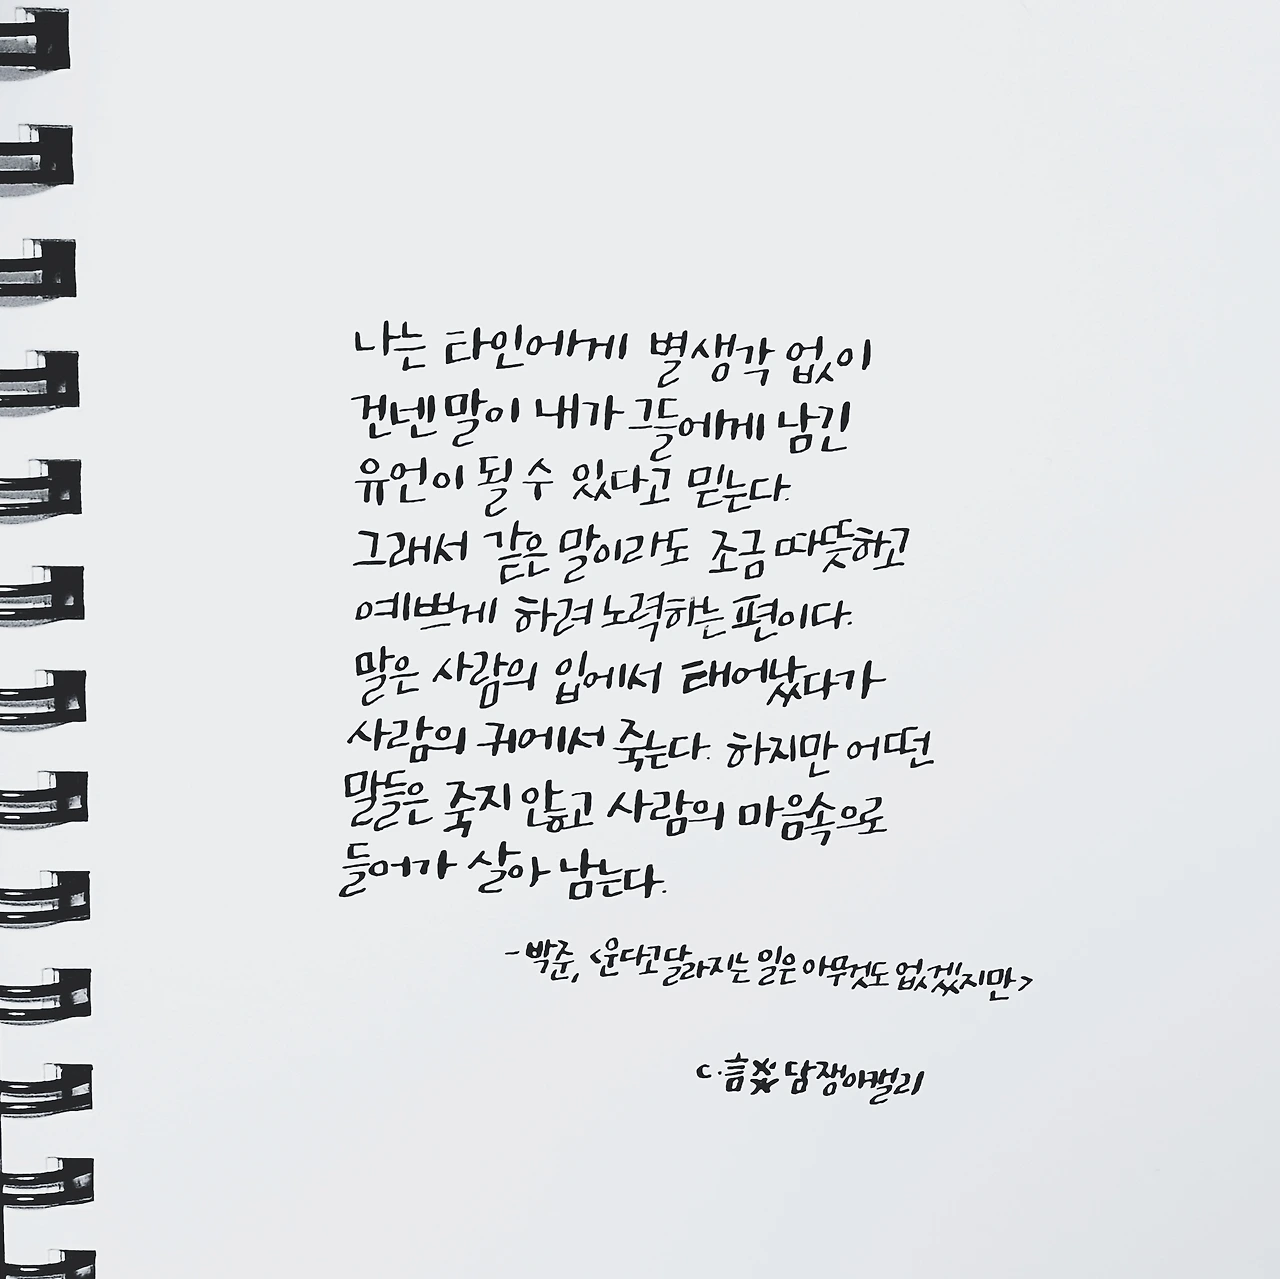 나는 타인에게 별생각 없이
건넨 말이 내가 그들에게 남긴
유언이 될 수 있다고 믿는다.
그래서 같은 말이라도 조금 따뜻하고
예쁘게 하려 노력하는 편이다.
말은 사람의 입에서 태어났다가
사람의 귀에서 죽는다. 하지만 어떤
말들은 죽지 않고 사람의 마음속으로
들어가 살아 남는다.
- 박준, <운다고 달라지는 일은 아무것도 없겠지만>
c. 담쟁이캘리